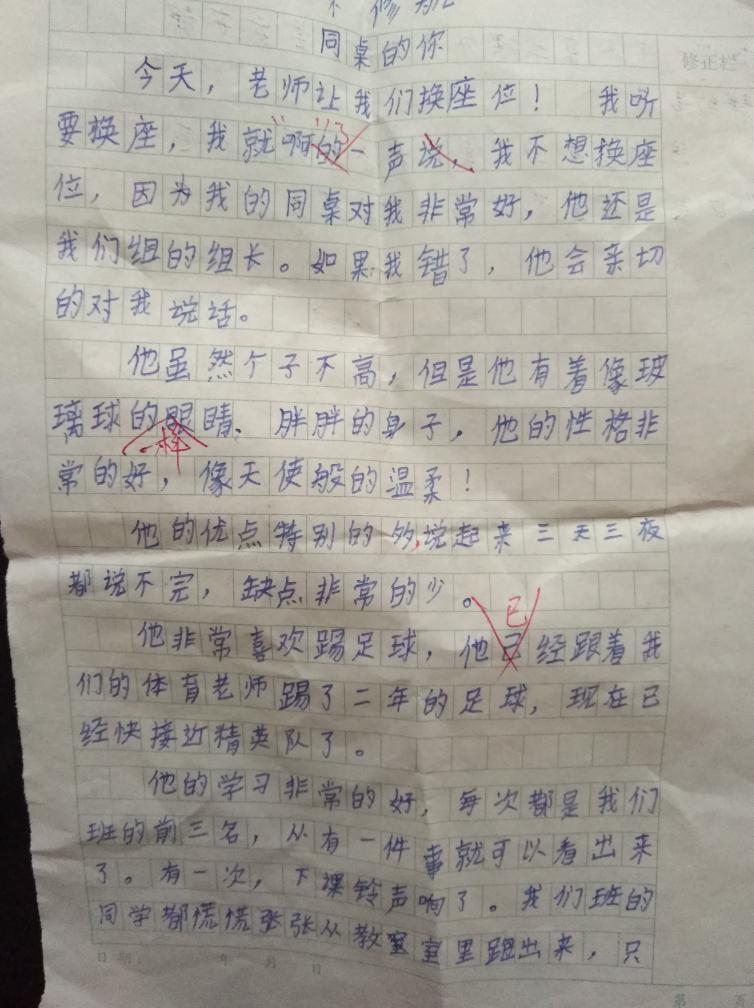 同桌的你
修正栏
今天，老师让我们换座位！ 我听
要换座，我就"啊"了的一声说，我不想换座
位，因为我的同桌对我非常好，他还是
我们组的组长。如果我错了，他会亲切
的对我说话。
他虽然个子不高，但是他有着像玻
璃球一样的眼睛、胖胖的身子，他的性格非
常的好，像天使般的温柔！
他的优点特别的多，说起来三天三夜
都说不完，缺点非常的少。
已
他非常喜欢踢足球，他己经跟着我
们的体育老师踢了二年的足球，现在已
经快接近精英队了。
他的学习非常的好，每次都是我们
班的前三名，从有一件事就可以看出来
了。有一次，下课铃声响了。我们班的
同学都慌慌张张从教室室里跑出来，只
日期： 年 月 日
第